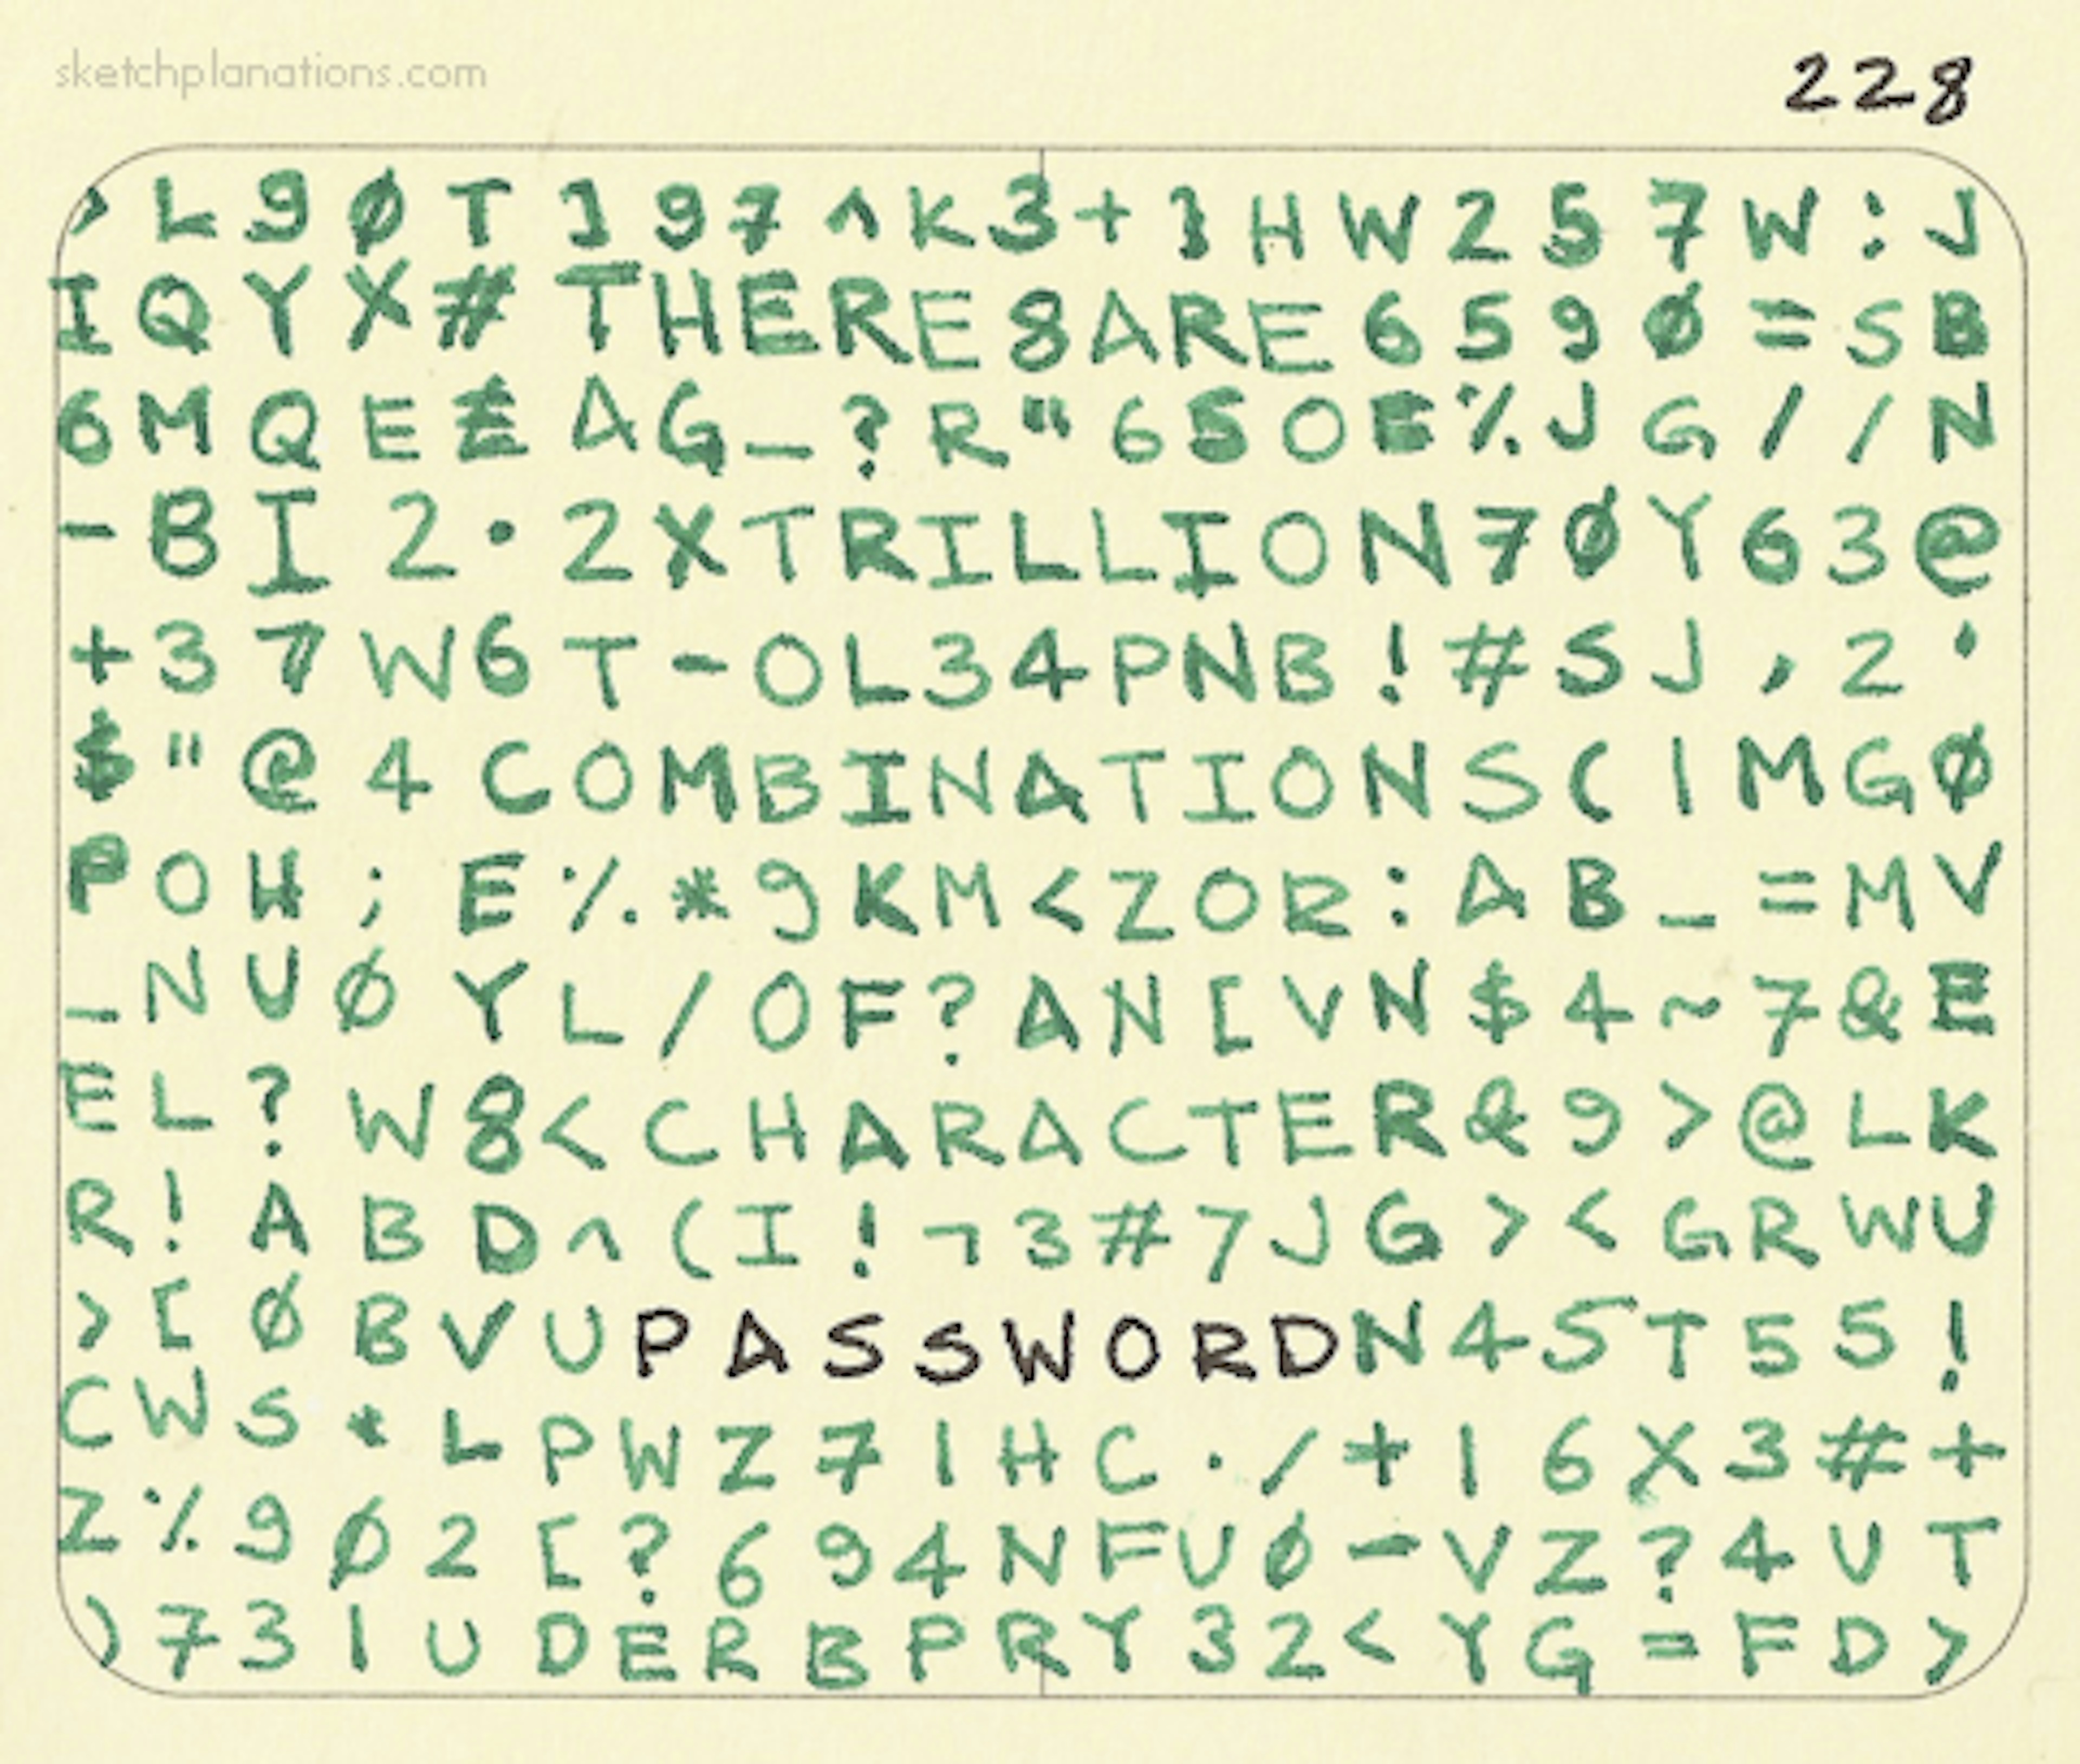 sketchplanations.com
228
> L 9 Ø T ] 9 7 ^ K 3 + } H W 2 5 7 W : J
I Q Y X # T H E R E 8 A R E 6 5 9 Ø = S B
6 M Q E A G _ ? R " 6 5 O E % J G / / N
- B I 2 . 2 X T R I L L I O N 7 Ø Y 6 3 @
+ 3 7 W 6 T - O L 3 4 P N B ! # S J , 2 '
$ " @ 4 C O M B I N A T I O N S ( I M G Ø
P O H ; E % * 9 K M < Z O R : A B _ = M V
_ N U Ø Y L / O F ? A N [ V N $ 4 ~ 7 & E
E L ? W 8 < C H A R A C T E R & 9 > @ L K
R ! A B D ^ ( I ! ¬ 3 # 7 J G > < G R W U
> [ Ø B V U P A S S W O R D N 4 5 T 5 5 !
C W S * L P W Z 7 1 H C . / + 1 6 X 3 # +
Z % 9 Ø 2 [ ? 6 9 4 N F U Ø - V Z ? 4 U T
) 7 3 1 U D E R B P R Y 3 2 < Y G = F D >